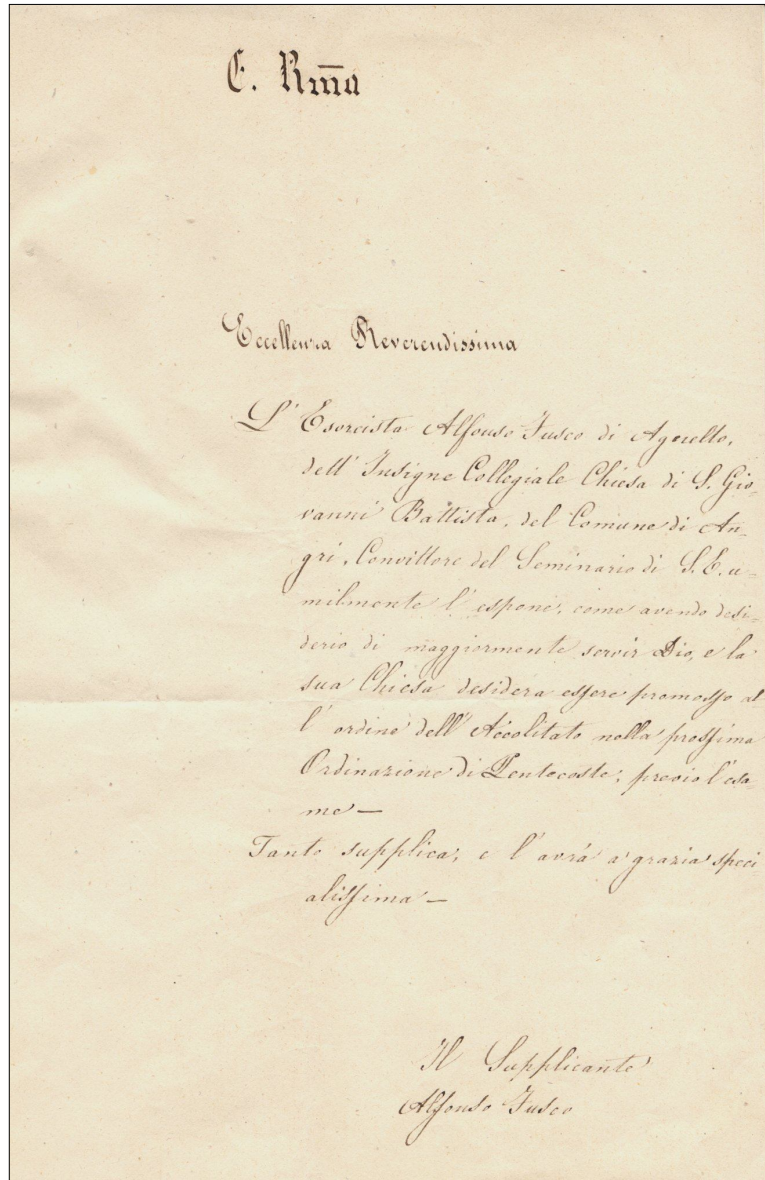 E. Rm̄a
Eccellenza Reverendissima
L' Esorcista Alfonso Fusco di Agnello,
dell' Insigne Collegiale Chiesa di S. Gio-
vanni Battista, del Comune di An-
gri, Convittore del Seminario di S. E. u-
milmente l' espone, come avendo desi-
derio di maggiormente servir Dio, e la
sua Chiesa desidera essere promosso al
l' ordine dell' Accolitato nella prossima
Ordinazione di Pentecoste, previo l' esa
me —
Tanto supplica, e l' avrà a grazia speci
alissima —
Il Supplicante
Alfonso Fusco